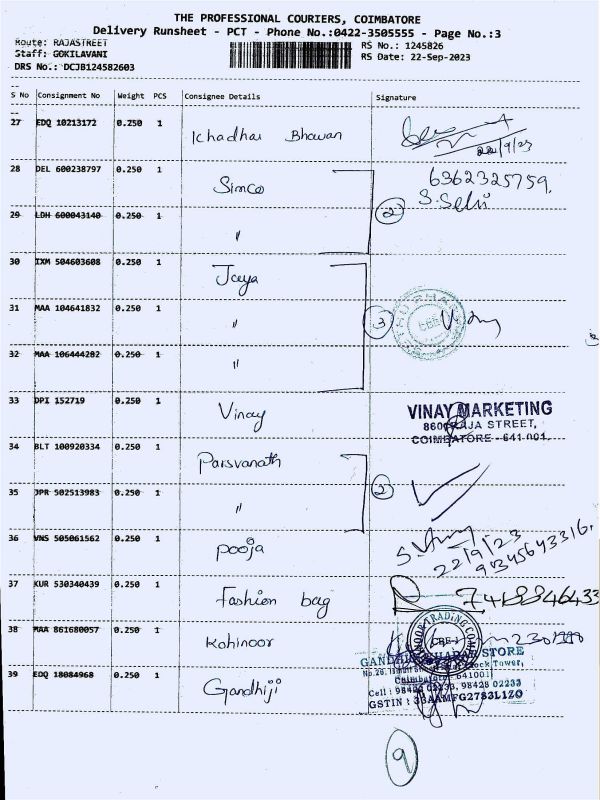 THE PROFESSIONAL COURIERS, COIMBATORE
Delivery Runsheet - PCT - Phone No.:0422-3505555 - Page No.:3
Route: RAJASTREET
Staff: GOKILAVANI
DRS No.: DCJB124582603
RS No.: 1245826
RS Date: 22-Sep-2023
S No Consignment No Weight PCS Consignee Details Signature
27 EDQ 10213172 0.250 1 Khadhai Bhawan
22/9/23
28 DEL 600238797 0.250 1 Simco 6362325759.
S. Selvi
29 LDH 600043140 0.250 1 〃 2
30 IXM 504603608 0.250 1 Jaya
31 MAA 104641832 0.250 1 〃 3
32 MAA 106444202 0.250 1 〃
33 DPI 152719 0.250 1 Vinay VINAY MARKETING
860 RAJA STREET,
COIMBATORE - 641 001.
34 BLT 100920334 0.250 1 Parsvanath
35 JPR 502513983 0.250 1 〃 2
36 VNS 505061562 0.250 1 pooja
22/9/23
9345643316.
37 KUR 530340439 0.250 1 Fashion bag
38 MAA 861680057 1 Kohinoor
39 EDQ 18084968 0.250 1 Gandhiji
STORE
Clock Tower,
Coimbatore - 641001
Cell : 98428 02233, 98428 02233
GSTIN : 33AAMFG2783L1ZO
9